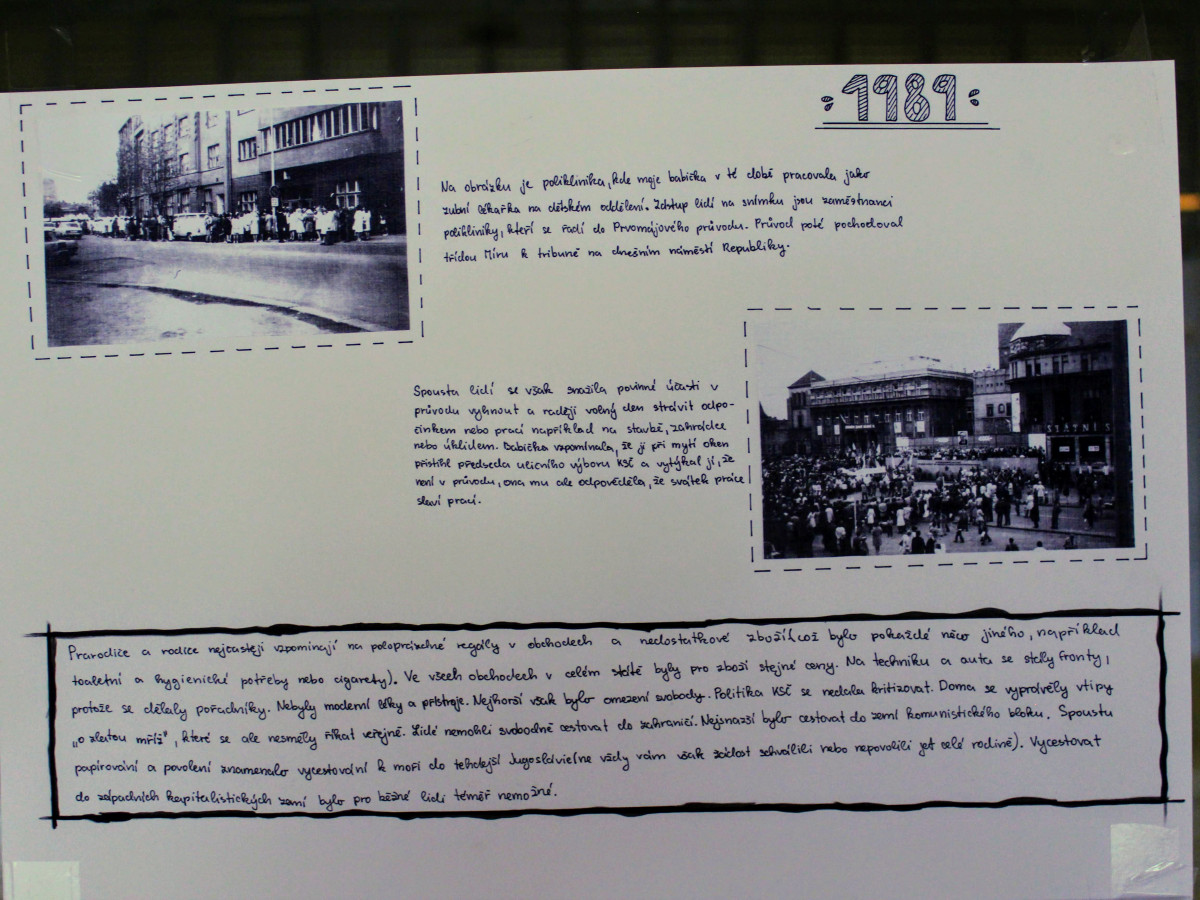 1989
Na obrázku je poliklinika, kde moje babička v té době pracovala jako
zubní lékařka na dětském oddělení. Zástup lidí na snímku jsou zaměstnanci
polikliniky, kteří se řadí do Prvomájového průvodu. Průvod poté pochodoval
třídou Míru k tribuně na dnešním náměstí Republiky.
Spousta lidí se však snažila povinné účasti v
průvodu vyhnout a raději volný den strávit odpo-
činkem nebo prací například na stavbě, zahrádce
nebo úklidem. Babička vzpomínala, že ji při mytí oken
přistihl předseda uličního výboru KSČ a vytýkal jí, že
není v průvodu, ona mu ale odpověděla, že svátek práce
slaví prací.
STÁTNÍ S
Prarodiče a rodiče nejčastěji vzpomínají na poloprázdné regály v obchodech a nedostatkové zboží (což bylo pokaždé něco jiného, například
toaletní a hygienické potřeby nebo cigarety). Ve všech obchodech v celém státě byly pro zboží stejné ceny. Na techniku a auta se stály fronty,
protože se dělaly pořadníky. Nebyly moderní léky a přístroje. Nejhorší však bylo omezení svobody. Politika KSČ se nedala kritizovat. Doma se vyprávěly vtipy
„o zlatou mříž", které se ale nesměly říkat veřejně. Lidé nemohli svobodně cestovat do zahraničí. Nejsnazší bylo cestovat do zemí komunistického bloku. Spoustu
papírování a povolení znamenalo vycestování k moři do tehdejší Jugoslávie (ne vždy vám však žádost schválili nebo nepovolili jet celé rodině). Vycestovat
do západních kapitalistických zemí bylo pro běžné lidi téměř nemožné.